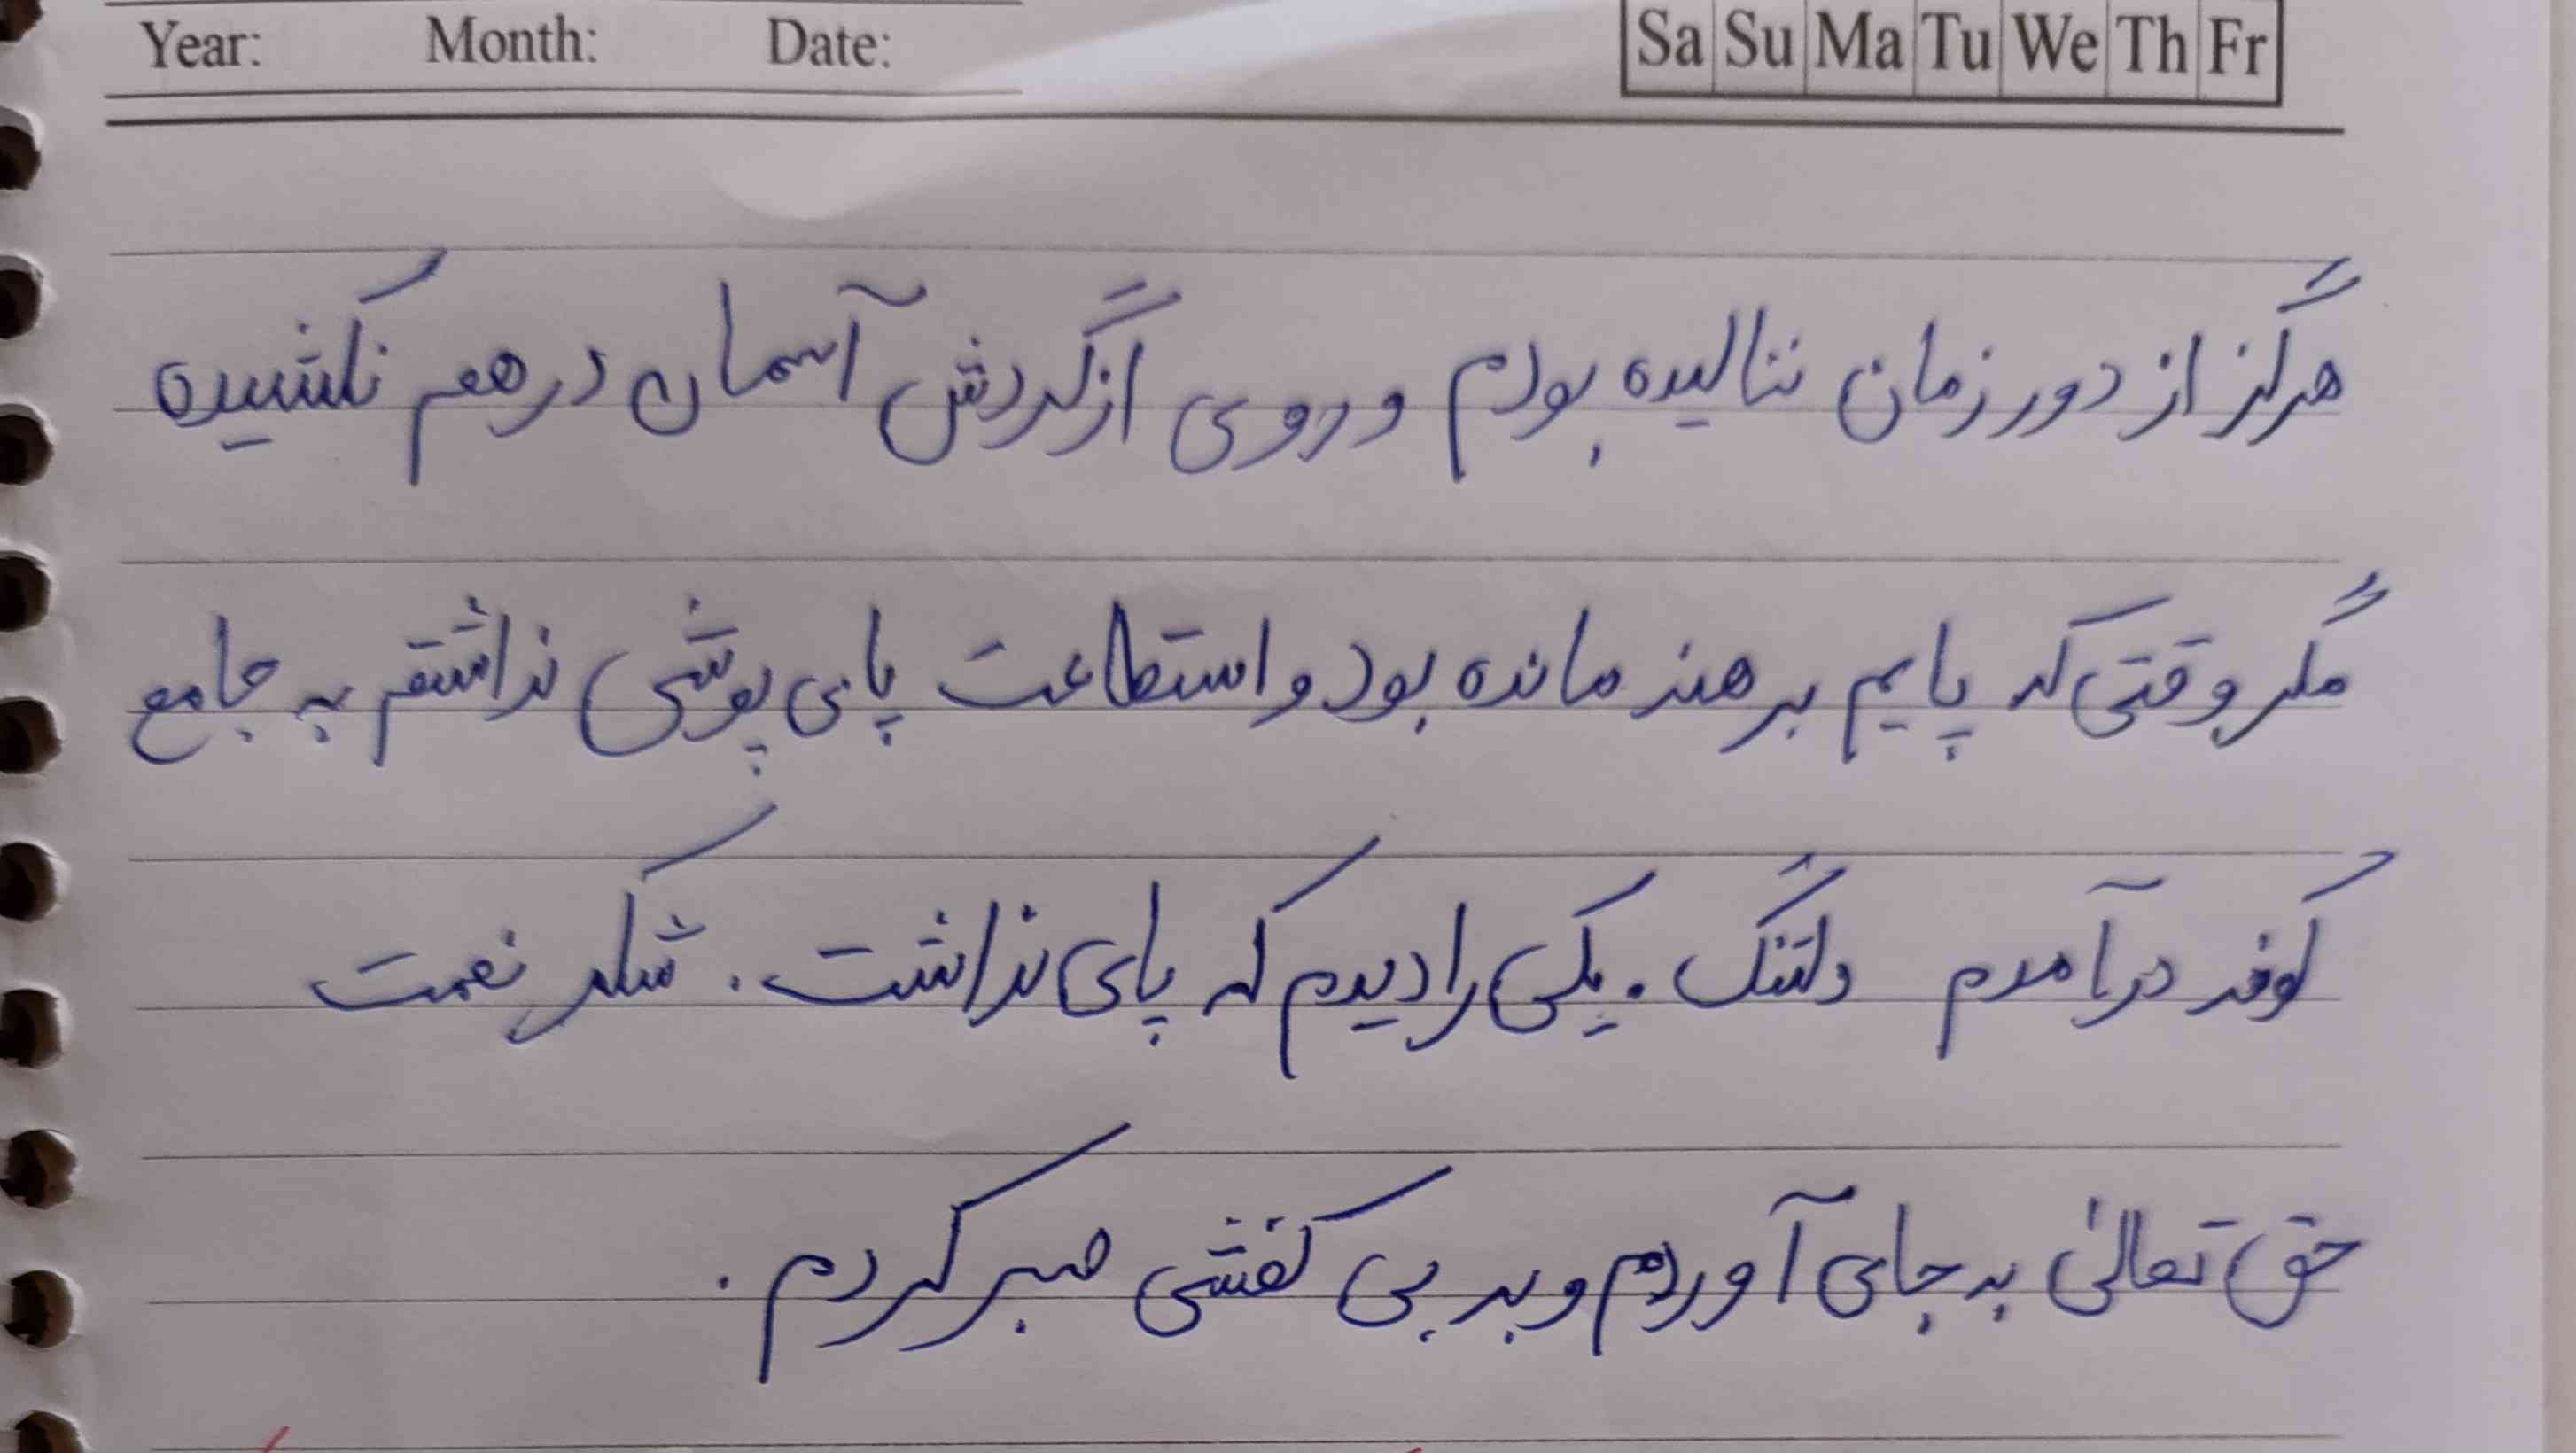 Year: Month: Date: Sa Su Ma Tu We Th Fr
هرگز از دور زمان ننالیده بودم و روی از گردش آسمان درهم نکشیده
مگر وقتی که پایم برهنه مانده بود و استطاعت پای پوشی نداشتم به جامع
کوفه درآمدم دلتنگ. یکی را دیدم که پای نداشت. شکر نعمت
حق تعالیٰ به جای آوردم و بر بی کفشی صبر کردم.